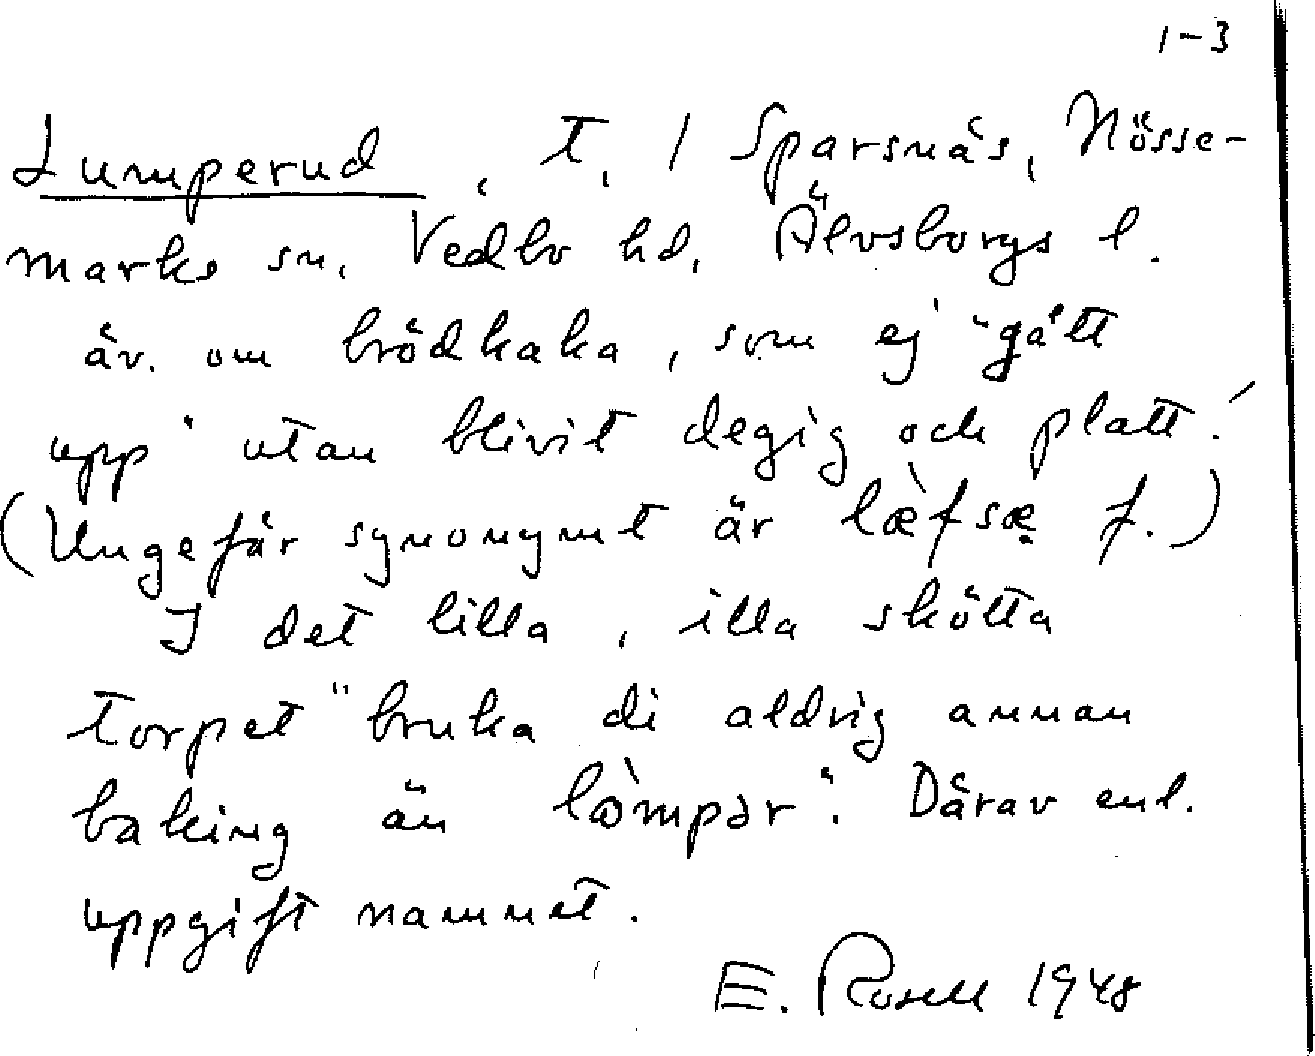 1-3
Lumperud, t, / Sparsnäs, Nösse-
marks sn, Vedbo hd, Älvsborgs l.
äv. om brödkaka, som ej "gått
upp" utan blivit degig och platt!
(Ungefär synonymt är læ̀fsæ̣ f.)
I det lilla, illa skötta
torpet "bruka di aldrig annan
baking än lòmpər". Därav enl.
uppgift namnet.
E. Rosell 1948